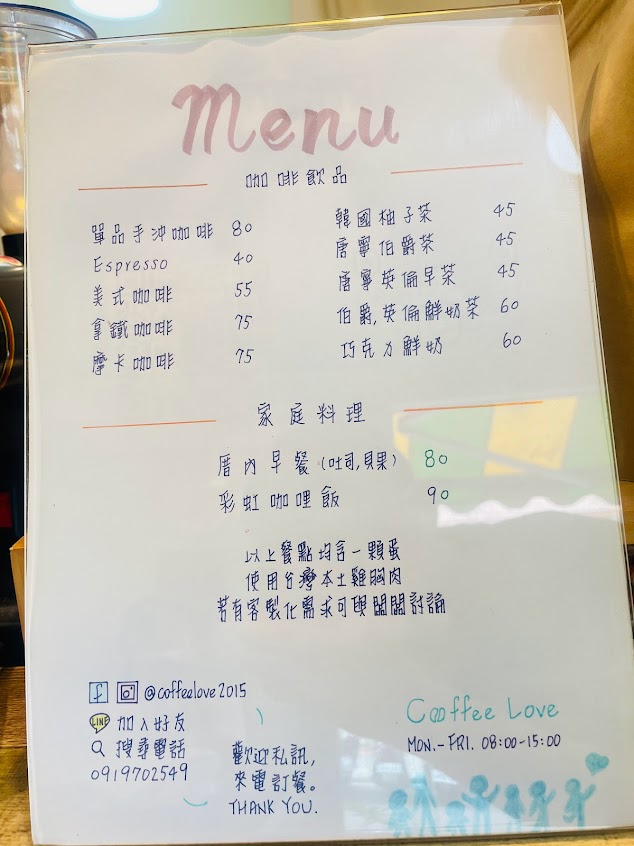 Menu
咖啡飲品
單品手沖咖啡 80
Espresso 40
美式咖啡 55
拿鐵咖啡 75
摩卡咖啡 75
韓國柚子茶 45
唐寧伯爵茶 45
唐寧英倫早茶 45
伯爵,英倫鮮奶茶 60
巧克力鮮奶 60
家庭料理
厝內早餐(吐司,貝果) 80
彩虹咖哩飯 90
以上餐點均含一顆蛋
使用台灣本土雞胸肉
若有客製化需求可與闆闆討論
f @coffeelove2015
LINE 加入好友
搜尋電話
0919702549
歡迎私訊,
來電訂餐。
THANK YOU.
Cooffee Love
MON.-FRI. 08:00-15:00